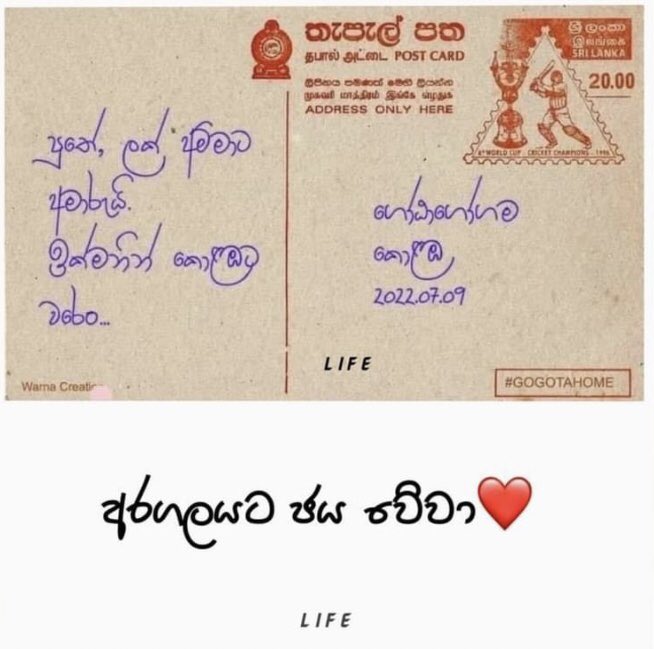 තැපැල් පත
தபால் அட்டை POST CARD
ලිපිනය පමණක් මෙහි ලියන්න
முகவரி மாத்திரம் இங்கே எழுதுக
ADDRESS ONLY HERE
ශ්‍රී ලංකා
இலங்கை
SRI LANKA
20.00
6th WORLD CUP - CRICKET CHAMPIONS - 1996
පුතේ, ලක් අම්මාට
අමාරුයි.
ඉක්මනින් කොළඹට
වරෙං...
ගෝඨාගෝගම
කොළඹ
2022.07.09
LIFE
Warna Creation
#GOGOTAHOME
අරගලයට ජය වේවා❤️
LIFE